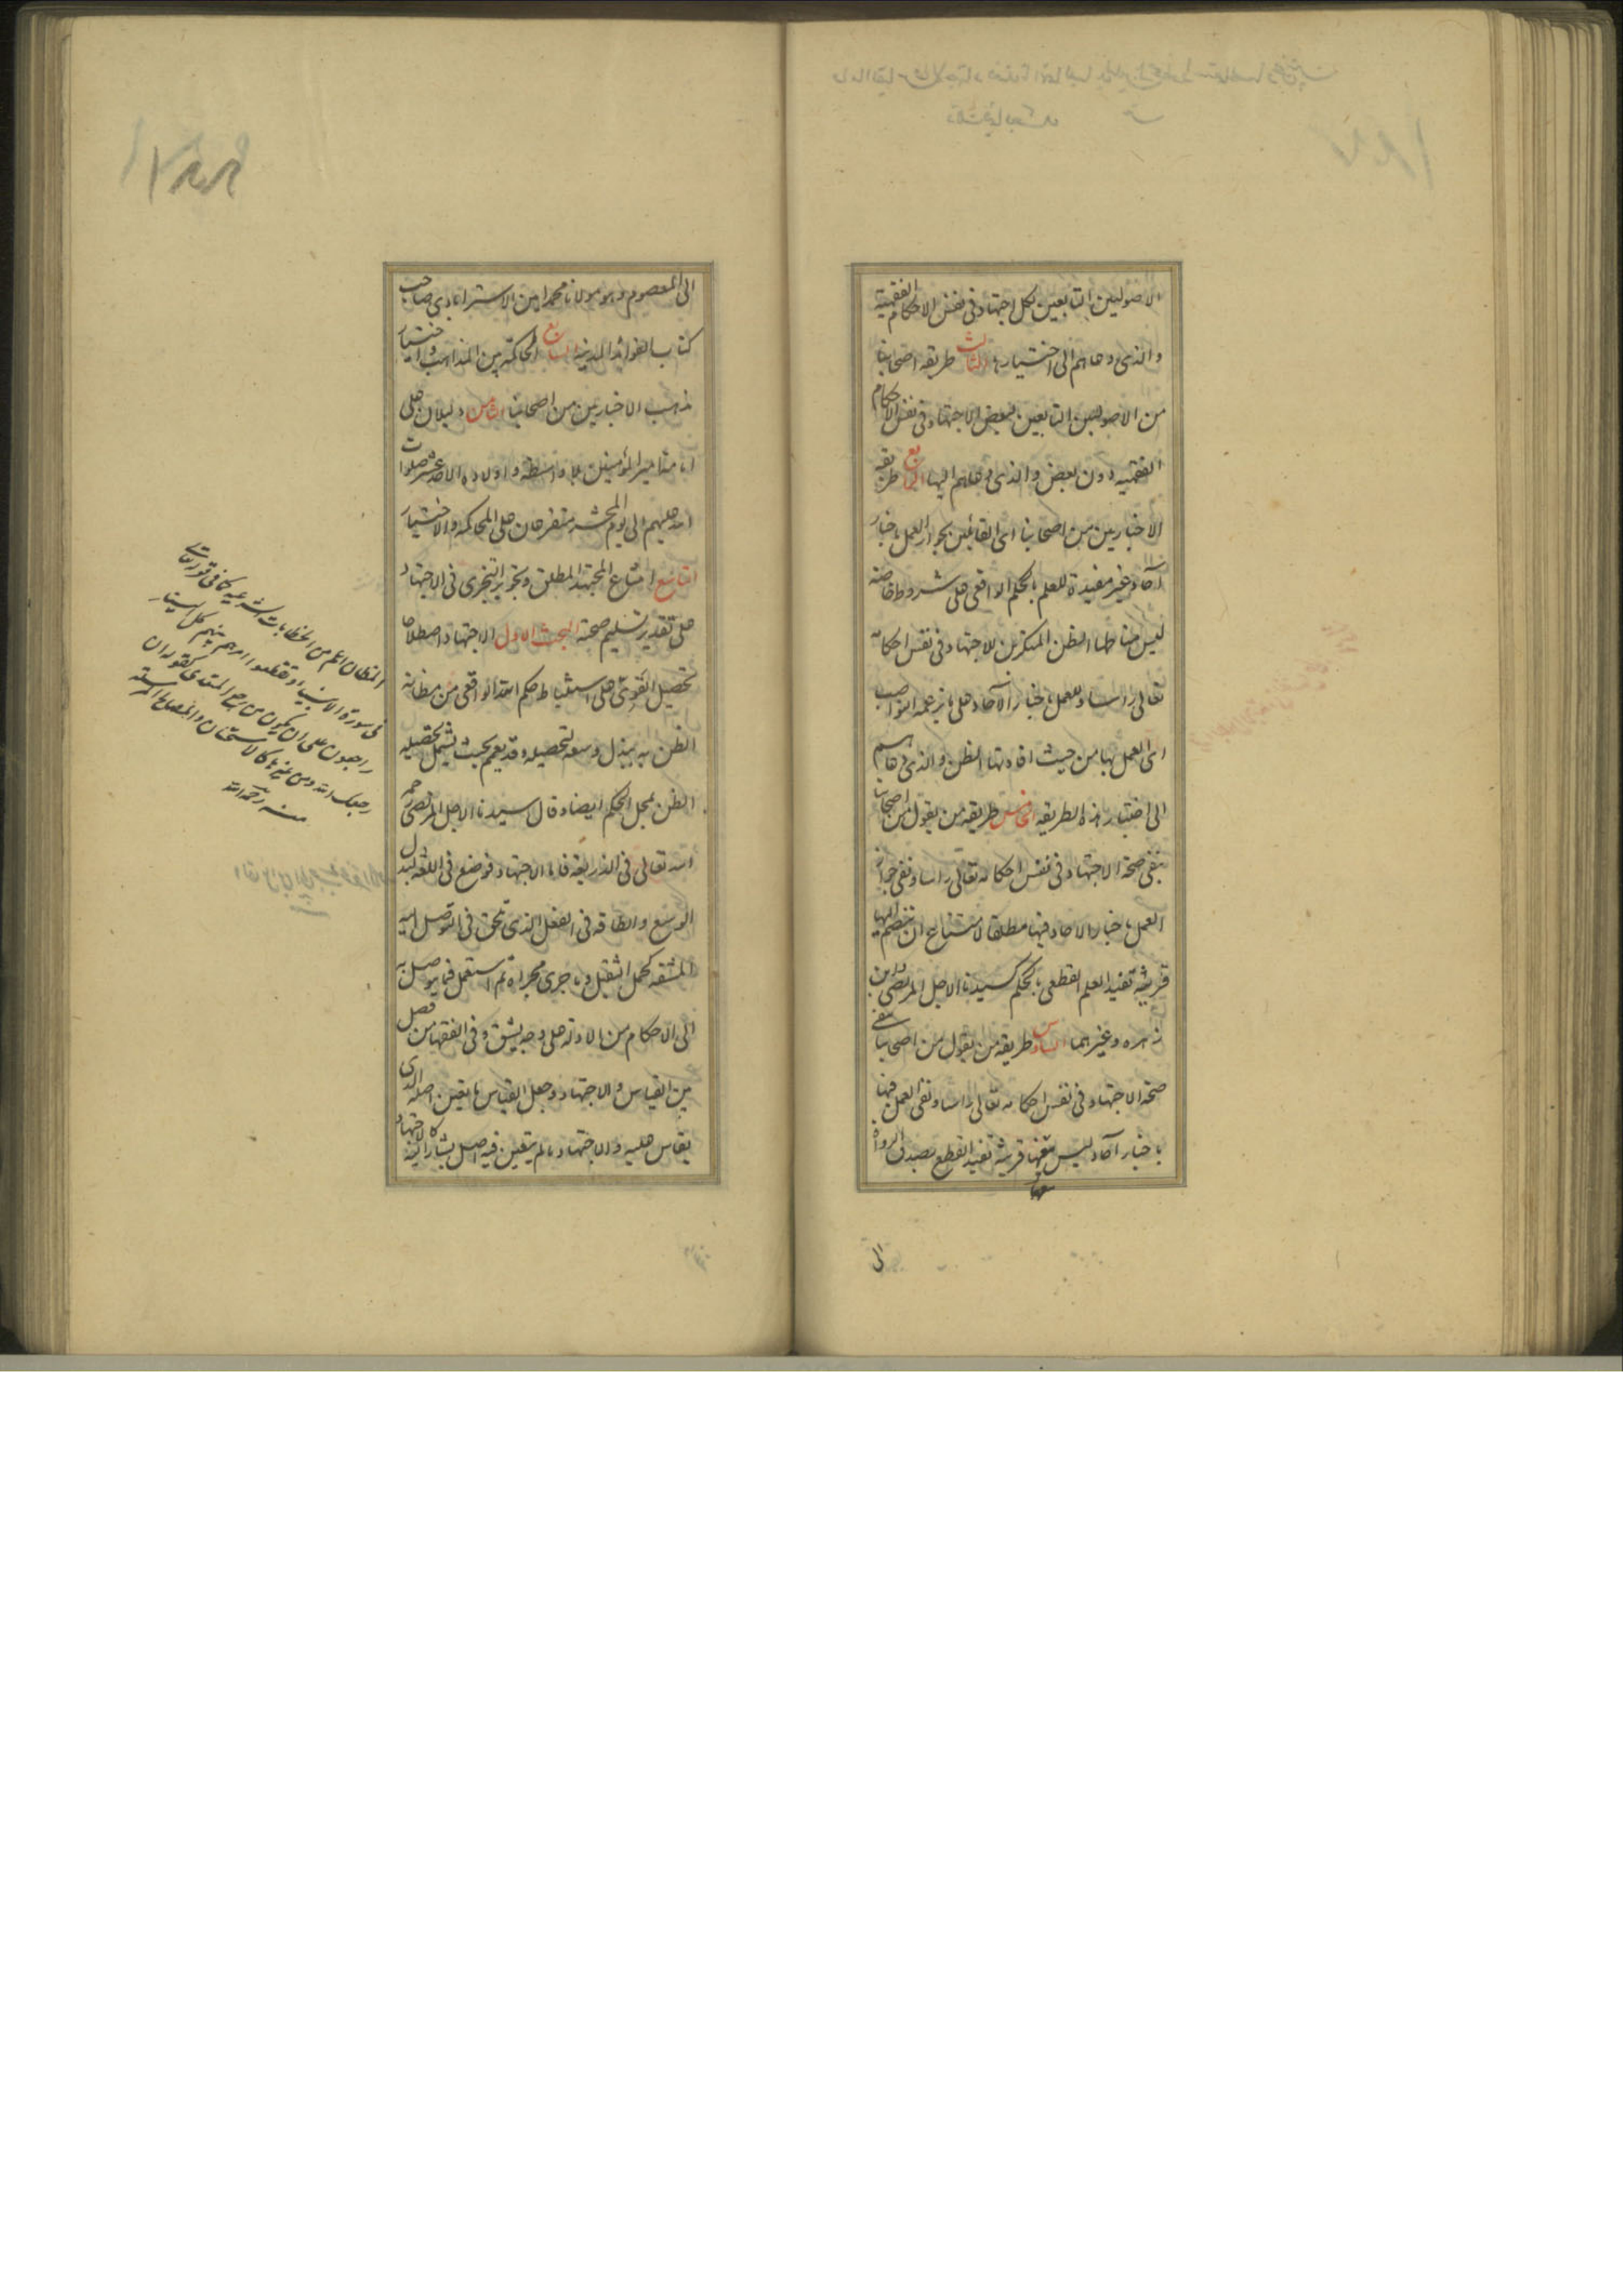 الاصوليين التابعين لكل اجتهاد فى نفس الاحكام الفقهية
والذى دعاهم الى اختيارها الثالث طريقه اصحابنا
من الاصوليين التابعين لبعض الاجتهاد فى نفس الاحكام
الفقهيه دون بعض والذى دعاهم اليها الرابع طريقه
الاخباريين من اصحابنا اى القائلين بجواز العمل باخبار
آحاد غير مفيدة للعلم بالحكم الواقعى على شروط خاصة
ليس مناطها الظن المنكرين للاجتهاد فى نفس احكامه
تعالى راسا وللعمل باخبار الآحاد على ما يزعمه النواصب
اى العمل بها من حيث افادتها الظن والذى دعاهم
الى اختيار هذه الطريقه الخامس طريقه من يقول من اصحابنا
بنفى صحة الاجتهاد فى نفس احكامه تعالى راسا ونفى جواز
العمل باخبار الاحاد فيها مطلقا لامتناع ان ينضم اليها
قرينة تفيد العلم القطعى بالحكم كسيدنا الاجل المرتضى وابن
زهره وغيرهما السادس طريقه من يقول من اصحابنا بنفى
صحة الاجتهاد فى نفس احكامه تعالى راسا ونفى العمل فيها
باخبار آحاد ليس معها قرينة تفيد القطع بصدق الرواة
معها
الى
١٨٨
الى المعصوم وهو مولانا محمد امين الاسترابادى صاحب
كتاب الفوائد المدنية السابع المحاكمة بين المذاهب واختيار
مذهب الاخباريين من اصحابنا الثامن دليلان على
امامة امير المؤمنين بلا واسطة واولاده الاحد عشر صلوات
الله عليهم الى يوم المحشر متفرعان على المحاكمه والاختيار
التاسع امتناع المجتهد المطلق وتجويز التجزى فى الاجتهاد
على تقدير تسليم صحته البحث الاول الاجتهاد اصطلاحا
تحصيل القوى على استنباط حكم الله الواقعى من مظانه
الظن به ببذل وسعه لتحصيله وقد يعمم بحيث يشمل تحصيله
الظن بمحل الحكم ايضا وقال سيدنا الاجل المرتضى رحمه
الله تعالى فى الذريعة فاما الاجتهاد فوضع فى اللغة لبذل
الوسع والطاقه فى الفعل الذى تلحق فى التوصل اليه
المشقه كحمل الثقيل وما جرى مجراه ثم استعمل فيما يتوصل به
الى الاحكام من الادلة على وجه يشق وفى الفقهاء من فصل
بين القياس والاجتهاد وجعل القياس ما تعين اصله الذى
يقاس عليه والاجتهاد ما لم يتعين فيه اصل يشار اليه كالاجتهاد
فى سورة الانبياء وتقطعوا امرهم بينهم كل الينا
راجعون على ان يكون من رجع المتعدى كقوله ان
رجعك الله ومن غيرها كالاستحسان والمصالح المرسلة
منه رحمه الله